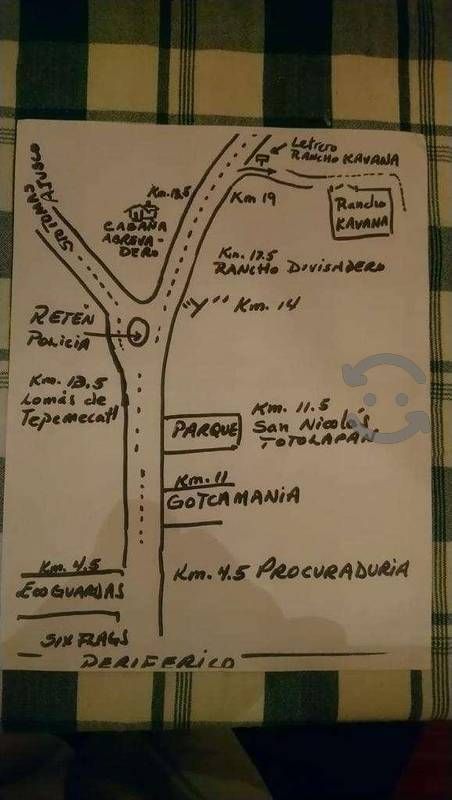 Letrero
RANCHO KAVANA
STO TOMAS AJUSCO
Km. 18.5
CABAÑA
ABREVA-
DERO
Km 19
Rancho
KAVANA
Km. 17.5
RANCHO DIVISADERO
"Y" Km. 14
RETÉN
Policia
Km. 13.5
Lomas de
Tepemecatl
PARQUE
Km. 11.5
San Nicolás
TOTOLAPAN
Km. 11
GOTCAMANIA
Km. 4.5
ECOGUARDAS
Km. 4.5 PROCURADURIA
SIX FLAGS
PERIFERICO